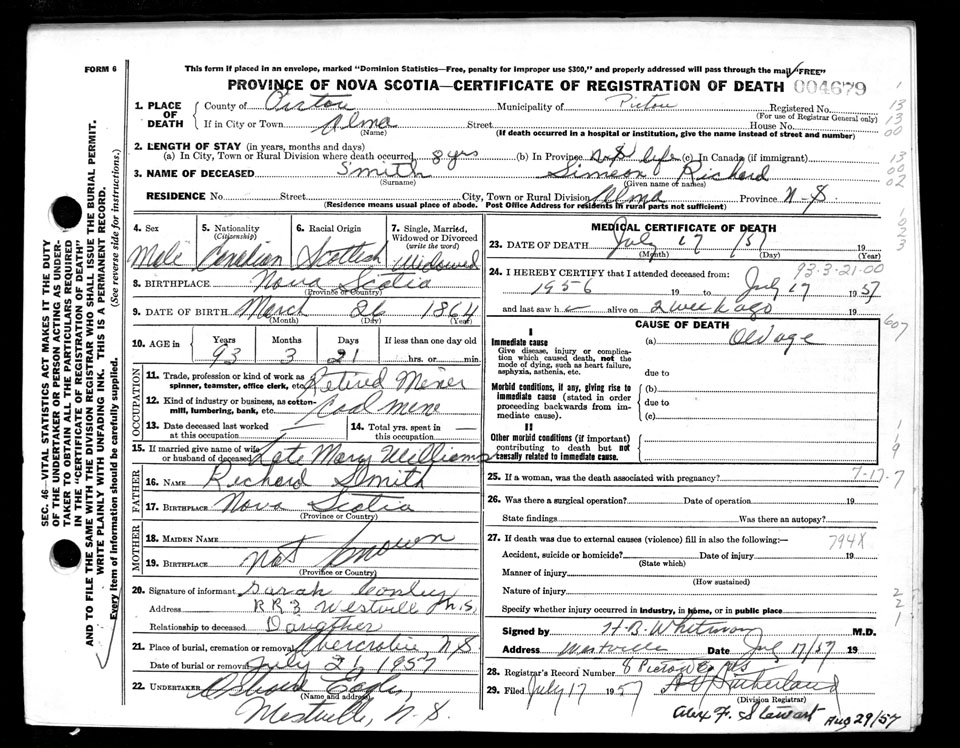 FORM 6
This form if placed in an envelope, marked "Dominion Statistics—Free, penalty for improper use $300," and properly addressed will pass through the mail "FREE"
PROVINCE OF NOVA SCOTIA—CERTIFICATE OF REGISTRATION OF DEATH 004679
1. PLACE OF DEATH
County of Pictou Municipality of Pictou Registered No.
(For use of Registrar General only)
If in City or Town Alma Street House No.
(Name) (If death occurred in a hospital or institution, give the name instead of street and number)
2. LENGTH OF STAY (in years, months and days)
(a) In City, Town or Rural Division where death occurred 8 yrs (b) In Province N.S life (c) In Canada (if immigrant)
3. NAME OF DECEASED Smith Simeon Richard
(Surname) (Given name or names)
RESIDENCE No. Street City, Town or Rural Division Alma Province N-S.
(Residence means usual place of abode. Post Office Address for residents in rural parts not sufficient)
4. Sex 5. Nationality (Citizenship) 6. Racial Origin 7. Single, Married, Widowed or Divorced (write the word)
Male Canadian Scottish Widowed
8. BIRTHPLACE Nova Scotia
(Province or Country)
9. DATE OF BIRTH March 26 1864
(Month) (Day) (Year)
10. AGE in Years Months Days If less than one day old
93 3 21 hrs. or min.
OCCUPATION
11. Trade, profession or kind of work as spinner, teamster, office clerk, etc. Retired Miner
12. Kind of industry or business, as cotton-mill, lumbering, bank, etc. Coal mine
13. Date deceased last worked at this occupation —
14. Total yrs. spent in this occupation —
15. If married give name of wife or husband of deceased Late Mary Williams
FATHER
16. NAME Richard Smith
17. BIRTHPLACE Nova Scotia
(Province or Country)
MOTHER
18. MAIDEN NAME
19. BIRTHPLACE Not Known
(Province or Country)
20. Signature of informant Sarah
Address R R 3 Westville N.S.
Relationship to deceased Daugther
21. Place of burial, cremation or removal N.S
Date of burial or removal July 21 1957
22. UNDERTAKER
(Name and address)
Westville, N.S.
MEDICAL CERTIFICATE OF DEATH
23. DATE OF DEATH July 17 /57 19
(Month) (Day) (Year)
93-3-21-00
24. I HEREBY CERTIFY that I attended deceased from:
1956 19 to July 17 1957
and last saw h alive on 2 week ago 19
607
CAUSE OF DEATH
I
Immediate cause
Give disease, injury or complication which caused death, not the mode of dying, such as heart failure, asphyxia, asthenia, etc.
(a) Old age
due to
Morbid conditions, if any, giving rise to immediate cause (stated in order proceeding backwards from immediate cause).
(b)
due to
(c)
II
Other morbid conditions (if important) contributing to death but not causally related to immediate cause.
25. If a woman, was the death associated with pregnancy? 7-17-7
26. Was there a surgical operation? Date of operation 19
State findings Was there an autopsy?
27. If death was due to external causes (violence) fill in also the following:— 794X
Accident, suicide or homicide? Date of injury 19
(State which)
Manner of injury
(How sustained)
Nature of injury
Specify whether injury occurred in industry, in home, or in public place
Signed by H. B. Whitman M.D.
Address Westville Date July 17/57 19
28. Registrar's Record Number 8
29. Filed July 17 1957 Sutherland
(Division Registrar)
Alex F. Stewart Aug 29/57
SEC. 46—VITAL STATISTICS ACT MAKES IT THE DUTY
OF THE UNDERTAKER OR PERSON ACTING AS UNDER-
TAKER TO OBTAIN ALL THE PARTICULARS REQUIRED
IN THE "CERTIFICATE OF REGISTRATION OF DEATH"
AND TO FILE THE SAME WITH THE DIVISION REGISTRAR WHO SHALL ISSUE THE BURIAL PERMIT.
WRITE PLAINLY WITH UNFADING INK. THIS IS A PERMANENT RECORD.
Every item of information should be carefully supplied. (See reverse side for instructions.)